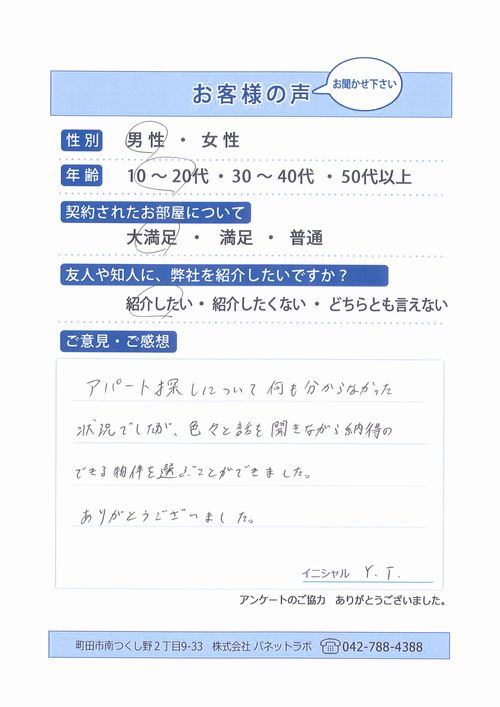 お客様の声
お聞かせ下さい
性別 男性 ・ 女性
年齢 10 〜 20代 ・ 30 〜 40代 ・ 50代以上
契約されたお部屋について
大満足 ・ 満足 ・ 普通
友人や知人に、弊社を紹介したいですか？
紹介したい ・ 紹介したくない ・ どちらとも言えない
ご意見・ご感想
アパート探しについて何も分からなかった
状況でしたが、色々と話を聞きながら納得の
できる物件を選ぶことができました。
ありがとうございました。
イニシャル Y.T.
アンケートのご協力 ありがとうございました。
町田市南つくし野２丁目9-33 株式会社 パネットラボ 042-788-4388